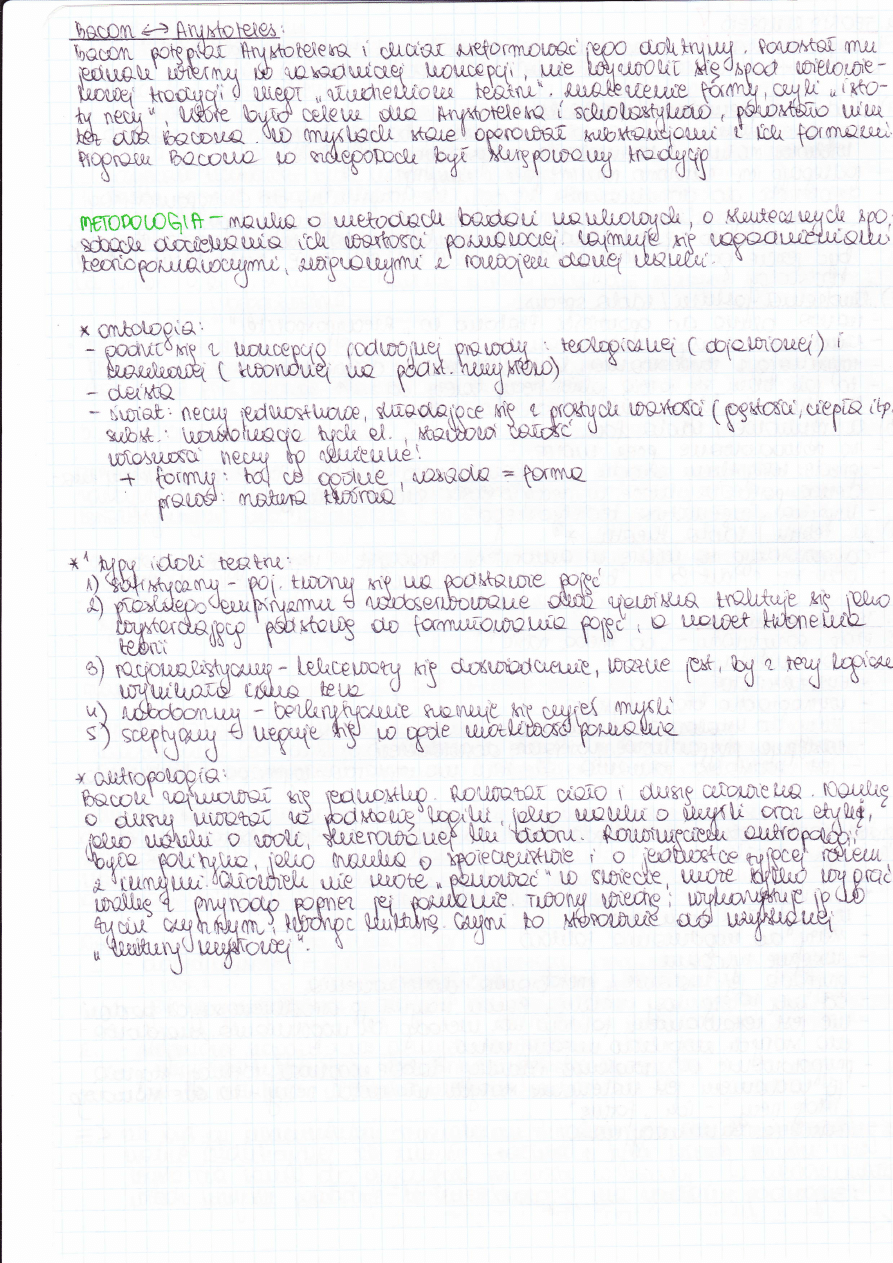 Bacon ↔ Arystoteles:
Bacon potępiał Arystotelesa i chciał zreformować jego doktryny. Pozostał mu
jednak wierny w zasadniczej koncepcji, nie wyzwolił się spod wielowie-
kowej tradycji, uległ „złudzeniom teatru". Znalezienie formy, czyli „isto-
ty rzeczy", które było celem dla Arystotelesa i scholastyków, pozostało nim
też dla Bacona. W myślach stale operował substancjami i ich formami.
Program Bacona w szczegółach był skrępowany tradycją
METODOLOGIA – nauka o metodach badań naukowych, o skutecznych spo-
sobach dociekania ich wartości poznawczej. Zajmuje się zagadnieniami
teoriopoznawczymi, związanymi z rozwojem danej nauki.
* ontologia:
- godził się z koncepcją podwójnej prawdy: teologicznej (objawionej) i
naukowej (tworzonej na podst. zmysłów)
- deista
- świat: rzeczy jednostkowe, składające się z prostych wartości (gęstości, ciepła itp.
subst.: kombinacja tych el., stanowi całość
własności rzeczy są zmienne!
+ formy: to, co ogólne, zasada = forma
prawo: natura twórcza
*¹ typy idoli teatru:
1) sofistyczny – poj. tworzy się na podstawie pojęć
2) płaskiego empiryzmu – zaobserwowane dwa zjawiska traktuje się jako
wystarczającą podstawę do formułowania pojęć, a nawet tworzenia
teorii
3) racjonalistyczny – lekceważy się doświadczenie, ważne jest, by z tezy logicznie
wynikała inna teza
4) zabobonny – bezkrytycznie uznaje się czyjeś myśli
5) sceptyczny – neguje się w ogóle możliwość poznania
* antropologia:
Bacon zajmował się jednostką. Rozważał ciało i duszę człowieka. Naukę
o duszy uważał za podstawę logiki, jako nauki o myśli oraz etyki,
jako nauki o woli, skierowanej ku dobru. Rozwinięciem antropologii
była polityka, jako nauka o społeczeństwie i o jednostce żyjącej razem
z innymi. Człowiek nie może „panować" w świecie, może tylko wygrać
walkę z przyrodą poprzez jej poznanie. Tworzy wiedzę i wykorzystuje ją w
życiu czynnym, tworząc kulturę. Czyni to stosownie do uzyskanej
„kultury umysłowej".